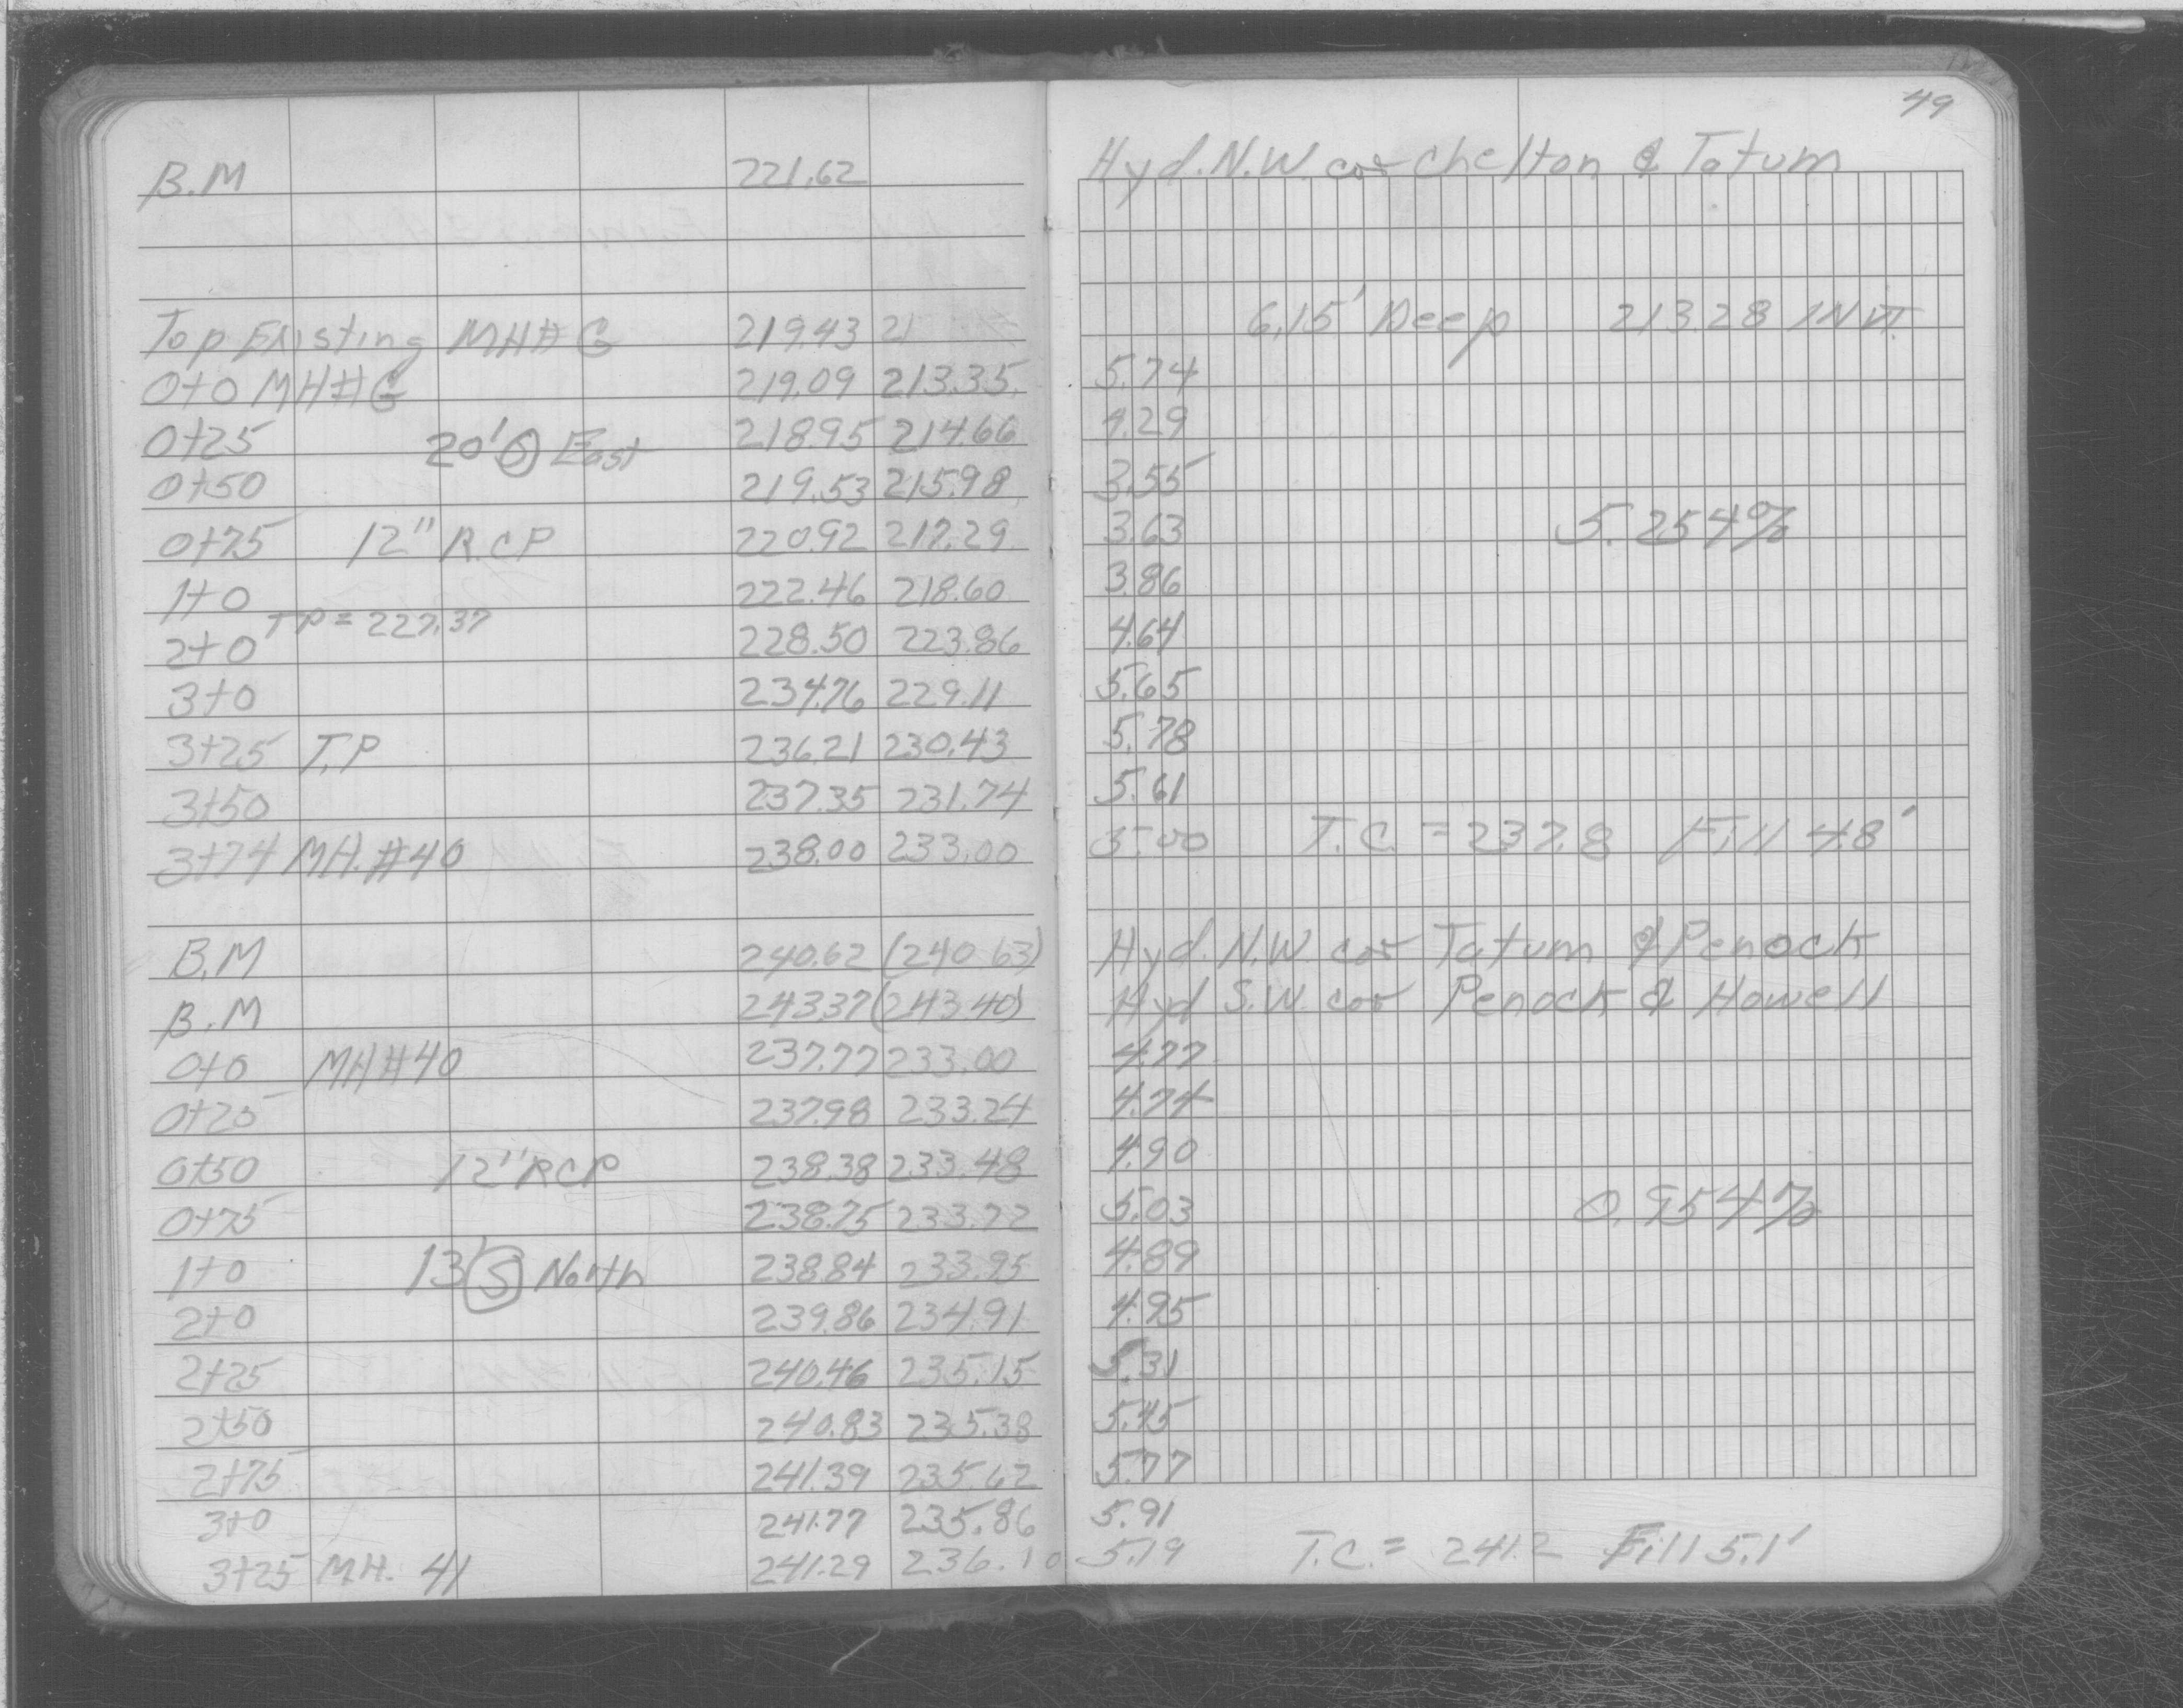 49
B.M 221.62 Hyd. N.W. cor Chelton & Tatum
Top Existing MH#G 219.43 21 6.15' Deep 213.28 INVT.
0+0 MH#G 219.09 213.35 5.74
0+25 20' Ⓢ East 218.95 214.66 4.29
0+50 219.53 215.98 3.55
0+75 12" R.C.P 220.92 217.29 3.63 5.254%
1+0 222.46 218.60 3.86
TP = 227.37
2+0 228.50 223.86 4.64
3+0 234.76 229.11 5.65
3+25 T.P 236.21 230.43 5.78
3+50 237.35 231.74 5.61
3+74 MH.#40 238.00 233.00 5.00 T.C. = 237.8 Fill 4.8'
B.M 240.62 (240.63) Hyd. N.W. cor Tatum & Penock
B.M 243.37 (243.40) Hyd S.W. cor Penock & Howell
0+0 MH#40 237.77 233.00 4.77
0+25 237.98 233.24 4.74
0+50 12" RCP 238.38 233.48 4.90
0+75 238.75 233.72 5.03 0.954%
1+0 13' Ⓢ North 238.84 233.95 4.89
2+0 239.86 234.91 4.95
2+25 240.46 235.15 5.31
2+50 240.83 235.38 5.45
2+75 241.39 235.62 5.77
3+0 241.77 235.86 5.91
3+25 M.H. 41 241.29 236.10 5.19 T.C. = 241.2 Fill 5.1'